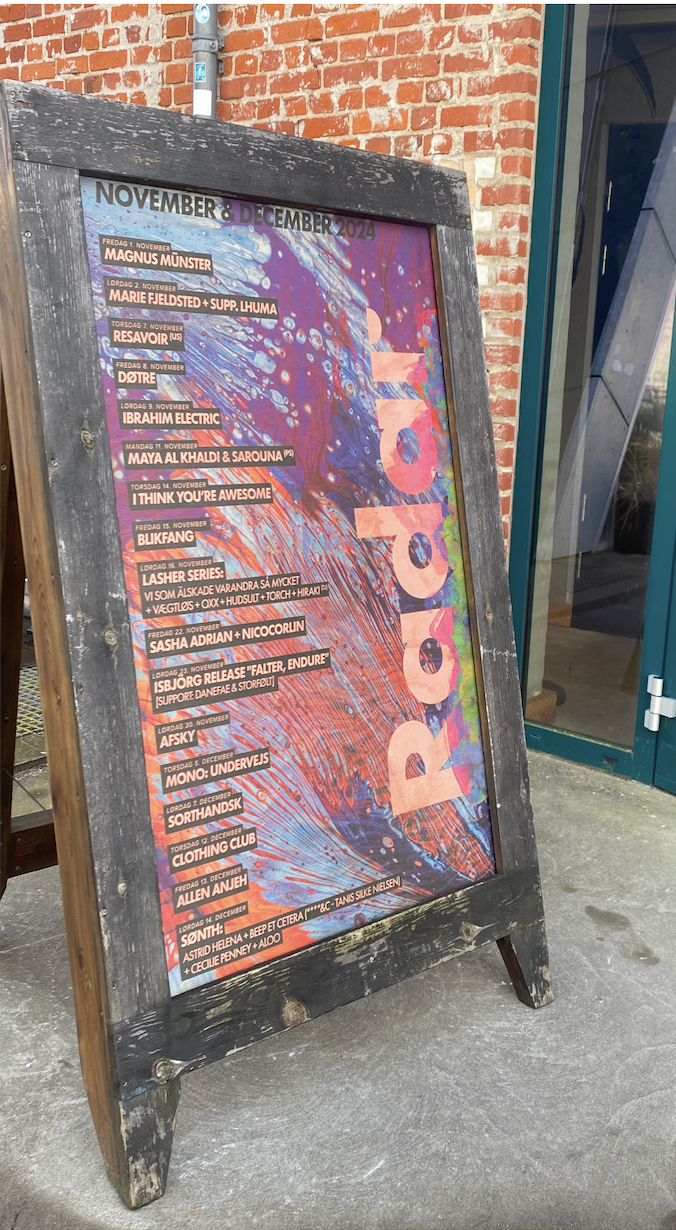 NOVEMBER & DECEMBER 2024
FREDAG 1. NOVEMBER
MAGNUS MÜNSTER
LØRDAG 2. NOVEMBER
MARIE FJELDSTED + SUPP. LHUMA
TORSDAG 7. NOVEMBER
RESAVOIR (US)
FREDAG 8. NOVEMBER
DØTRE
LØRDAG 9. NOVEMBER
IBRAHIM ELECTRIC
MANDAG 11. NOVEMBER
MAYA AL KHALDI & SAROUNA (PS)
TORSDAG 14. NOVEMBER
I THINK YOU'RE AWESOME
FREDAG 15. NOVEMBER
BLIKFANG
LØRDAG 16. NOVEMBER
LASHER SERIES:
VI SOM ÄLSKADE VARANDRA SÅ MYCKET
+ VÆGTLØS + OXX + HUDSULT + TORCH + HIRAKI
FREDAG 22. NOVEMBER
SASHA ADRIAN + NICOCORLIN
LØRDAG 23. NOVEMBER
ISBJÖRG RELEASE "FALTER, ENDURE"
[SUPPORT: DANEFAE & STORFØLT]
LØRDAG 30. NOVEMBER
AFSKY
TORSDAG 5. DECEMBER
MONO: UNDERVEJS
LØRDAG 7. DECEMBER
SORTHANDSK
TORSDAG 12. DECEMBER
CLOTHING CLUB
FREDAG 13. DECEMBER
ALLEN ANJEH
LØRDAG 14. DECEMBER
SØNTH:
ASTRID HELENA + BEEP ET CETERA (****&C - TANIS SILKE NIELSEN)
+ CECILIE PENNEY + ALOO
Radar